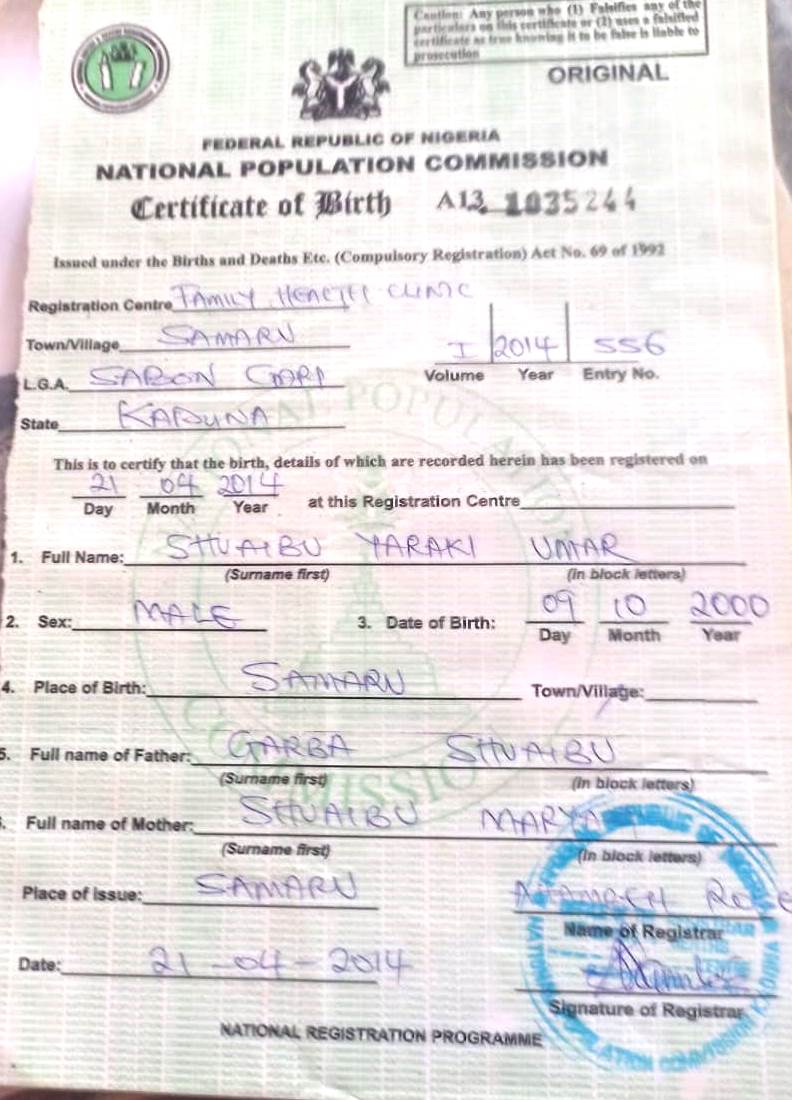 Caution: Any person who (1) Falsifies any of the
particulars on this certificate or (2) uses a falsified
certificate as true knowing it to be false is liable to
prosecution
ORIGINAL
FEDERAL REPUBLIC OF NIGERIA
NATIONAL POPULATION COMMISSION
Certificate of Birth A13 1035244
Issued under the Births and Deaths Etc. (Compulsory Registration) Act No. 69 of 1992
Registration Centre FAMILY HEALTH CLINIC
Town/Village SAMARU
I 2014 556
L.G.A. SABON GARI
Volume Year Entry No.
State KADUNA
This is to certify that the birth, details of which are recorded herein has been registered on
21 04 2014
Day Month Year at this Registration Centre
1. Full Name: SHUAIBU YARAKI UMAR
(Surname first) (in block letters)
2. Sex: MALE 3. Date of Birth: 09 10 2000
Day Month Year
4. Place of Birth: SAMARU Town/Village:
5. Full name of Father: GARBA SHUAIBU
(Surname first) (in block letters)
. Full name of Mother: SHUAIBU MARYA
(Surname first) (in block letters)
Place of Issue: SAMARU
Name of Registrar
Date: 21-04-2014
Signature of Registrar
NATIONAL REGISTRATION PROGRAMME